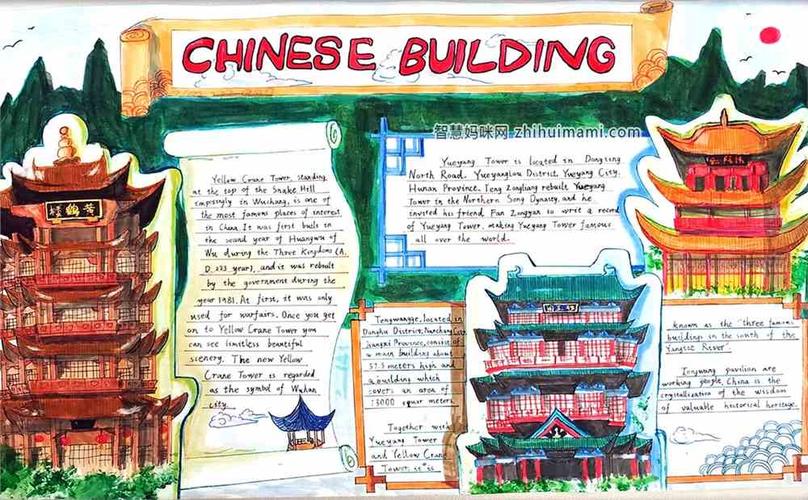 CHINESE BUILDING
智慧妈咪网 zhihuimami.com
黄鹤楼
Yellow Crane Tower, standing
at the top of the Snake Hill
impingly in Wuhang, is one of
the most famous places of interest
in China. It was first built in
the second year of Huangwu of
Wu during the Three Kingdoms (A.
D. 223 year), and it was rebuilt
by the government during the
year 1981. At first, it was only
used for warfairs. Once you get
on to Yellow Crane Tower you
can see limitless beautiful
scenery. The new Yellow
Crane Tower is regarded
as the symbol of Wuhan
city.
Yueyang Tower is located in Dongting
North Road, Yueyanglou District, Yueyang City,
Hunan Province. Teng Zongliang rebuilt Yueyang
Tower in the Northern Song Dynasty, and he
invited his friend Fan Zongyan to write a record
of Yueyang Tower, making Yueyang Tower famous
all over the world.
Tengwangge, located in
Donghu District, Nanchang City,
Jiangxi Province, consists of
a main building about
57.5 meters high and
a building which
covers an area of
13000 squar meters.
Together with
Yueyang Tower
and Yellow Crane
Tower, it is
known as the "three famous
building in the south of the
Yangtse River".
Tengwang pavilion are
working people, China is the
crystallization of the wisdom
of valuable historical heritage.